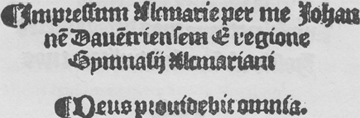 ¶Impressum Alcmarie per me Johan
nē Dauētriensem E regione
Gymnasij Alcmariani
¶Deus prouidebit omnia.